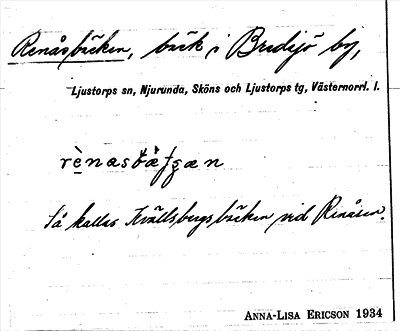 Renåsbäcken, bäck i Bredsjö by,
Ljustorps sn, Njurunda, Sköns och Ljustorps tg, Västernorrl. l.
Så kallas Kvällsbergsbäcken vid Renåsen.
ANNA-LISA ERICSON 1934